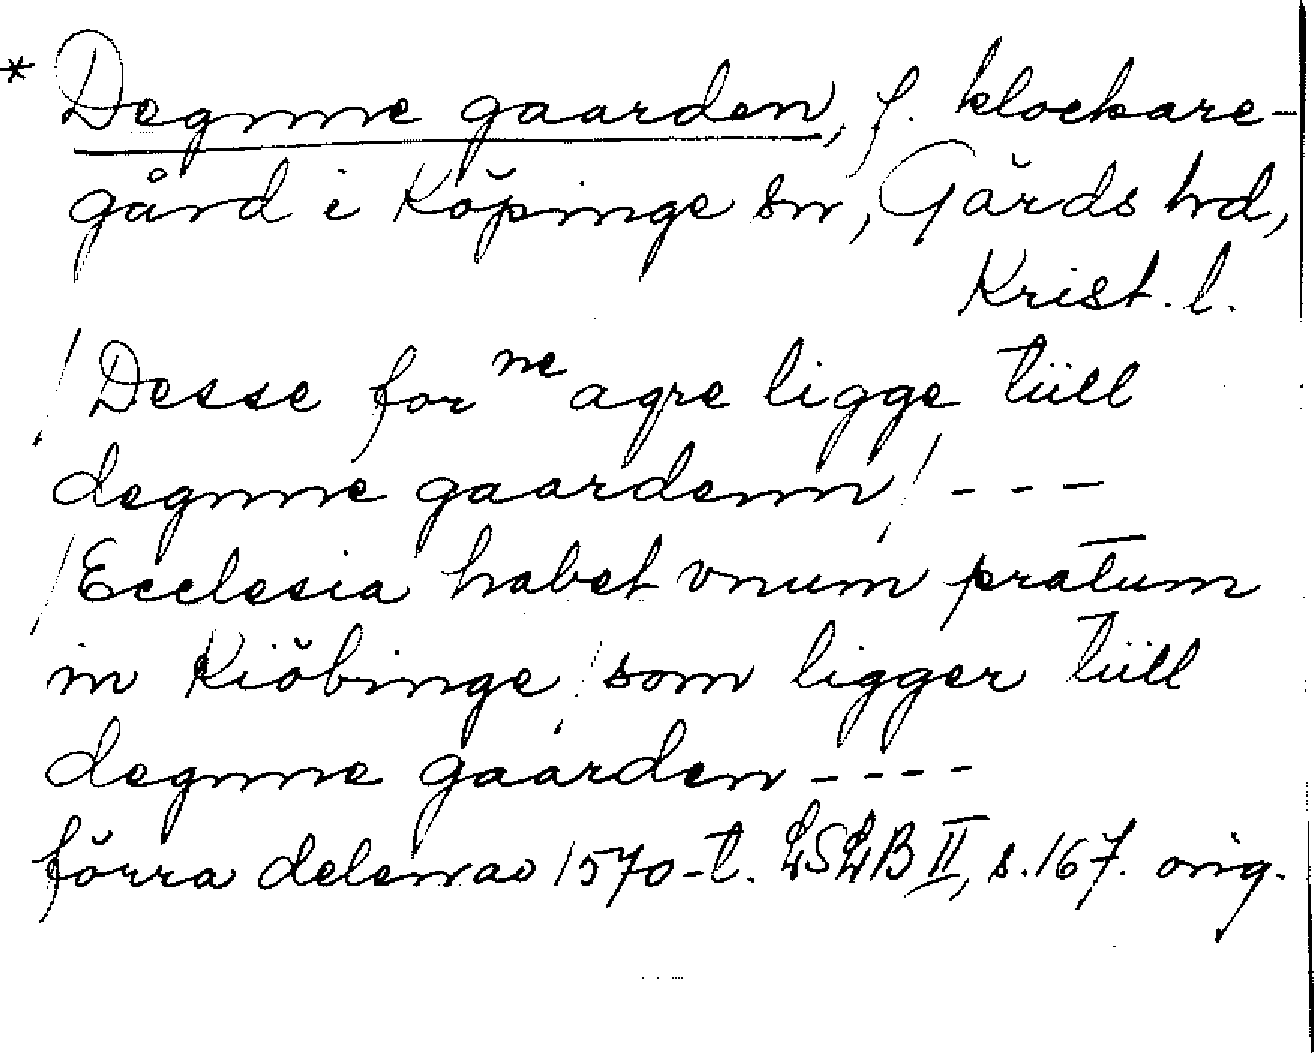 * Degnne gaarden, f. klockare-
gård i Köpinge sn, Gärds hd,
Krist. l.
/ Desse for ne agre ligge tüll
degnne gaardenn / - - -
/ Ecclesia habet vnum pratum
in Kiöbinge / som ligger tüll
degnne gaarden - - - -
förra delen av 1570-t. LSLB II, s. 167. orig.